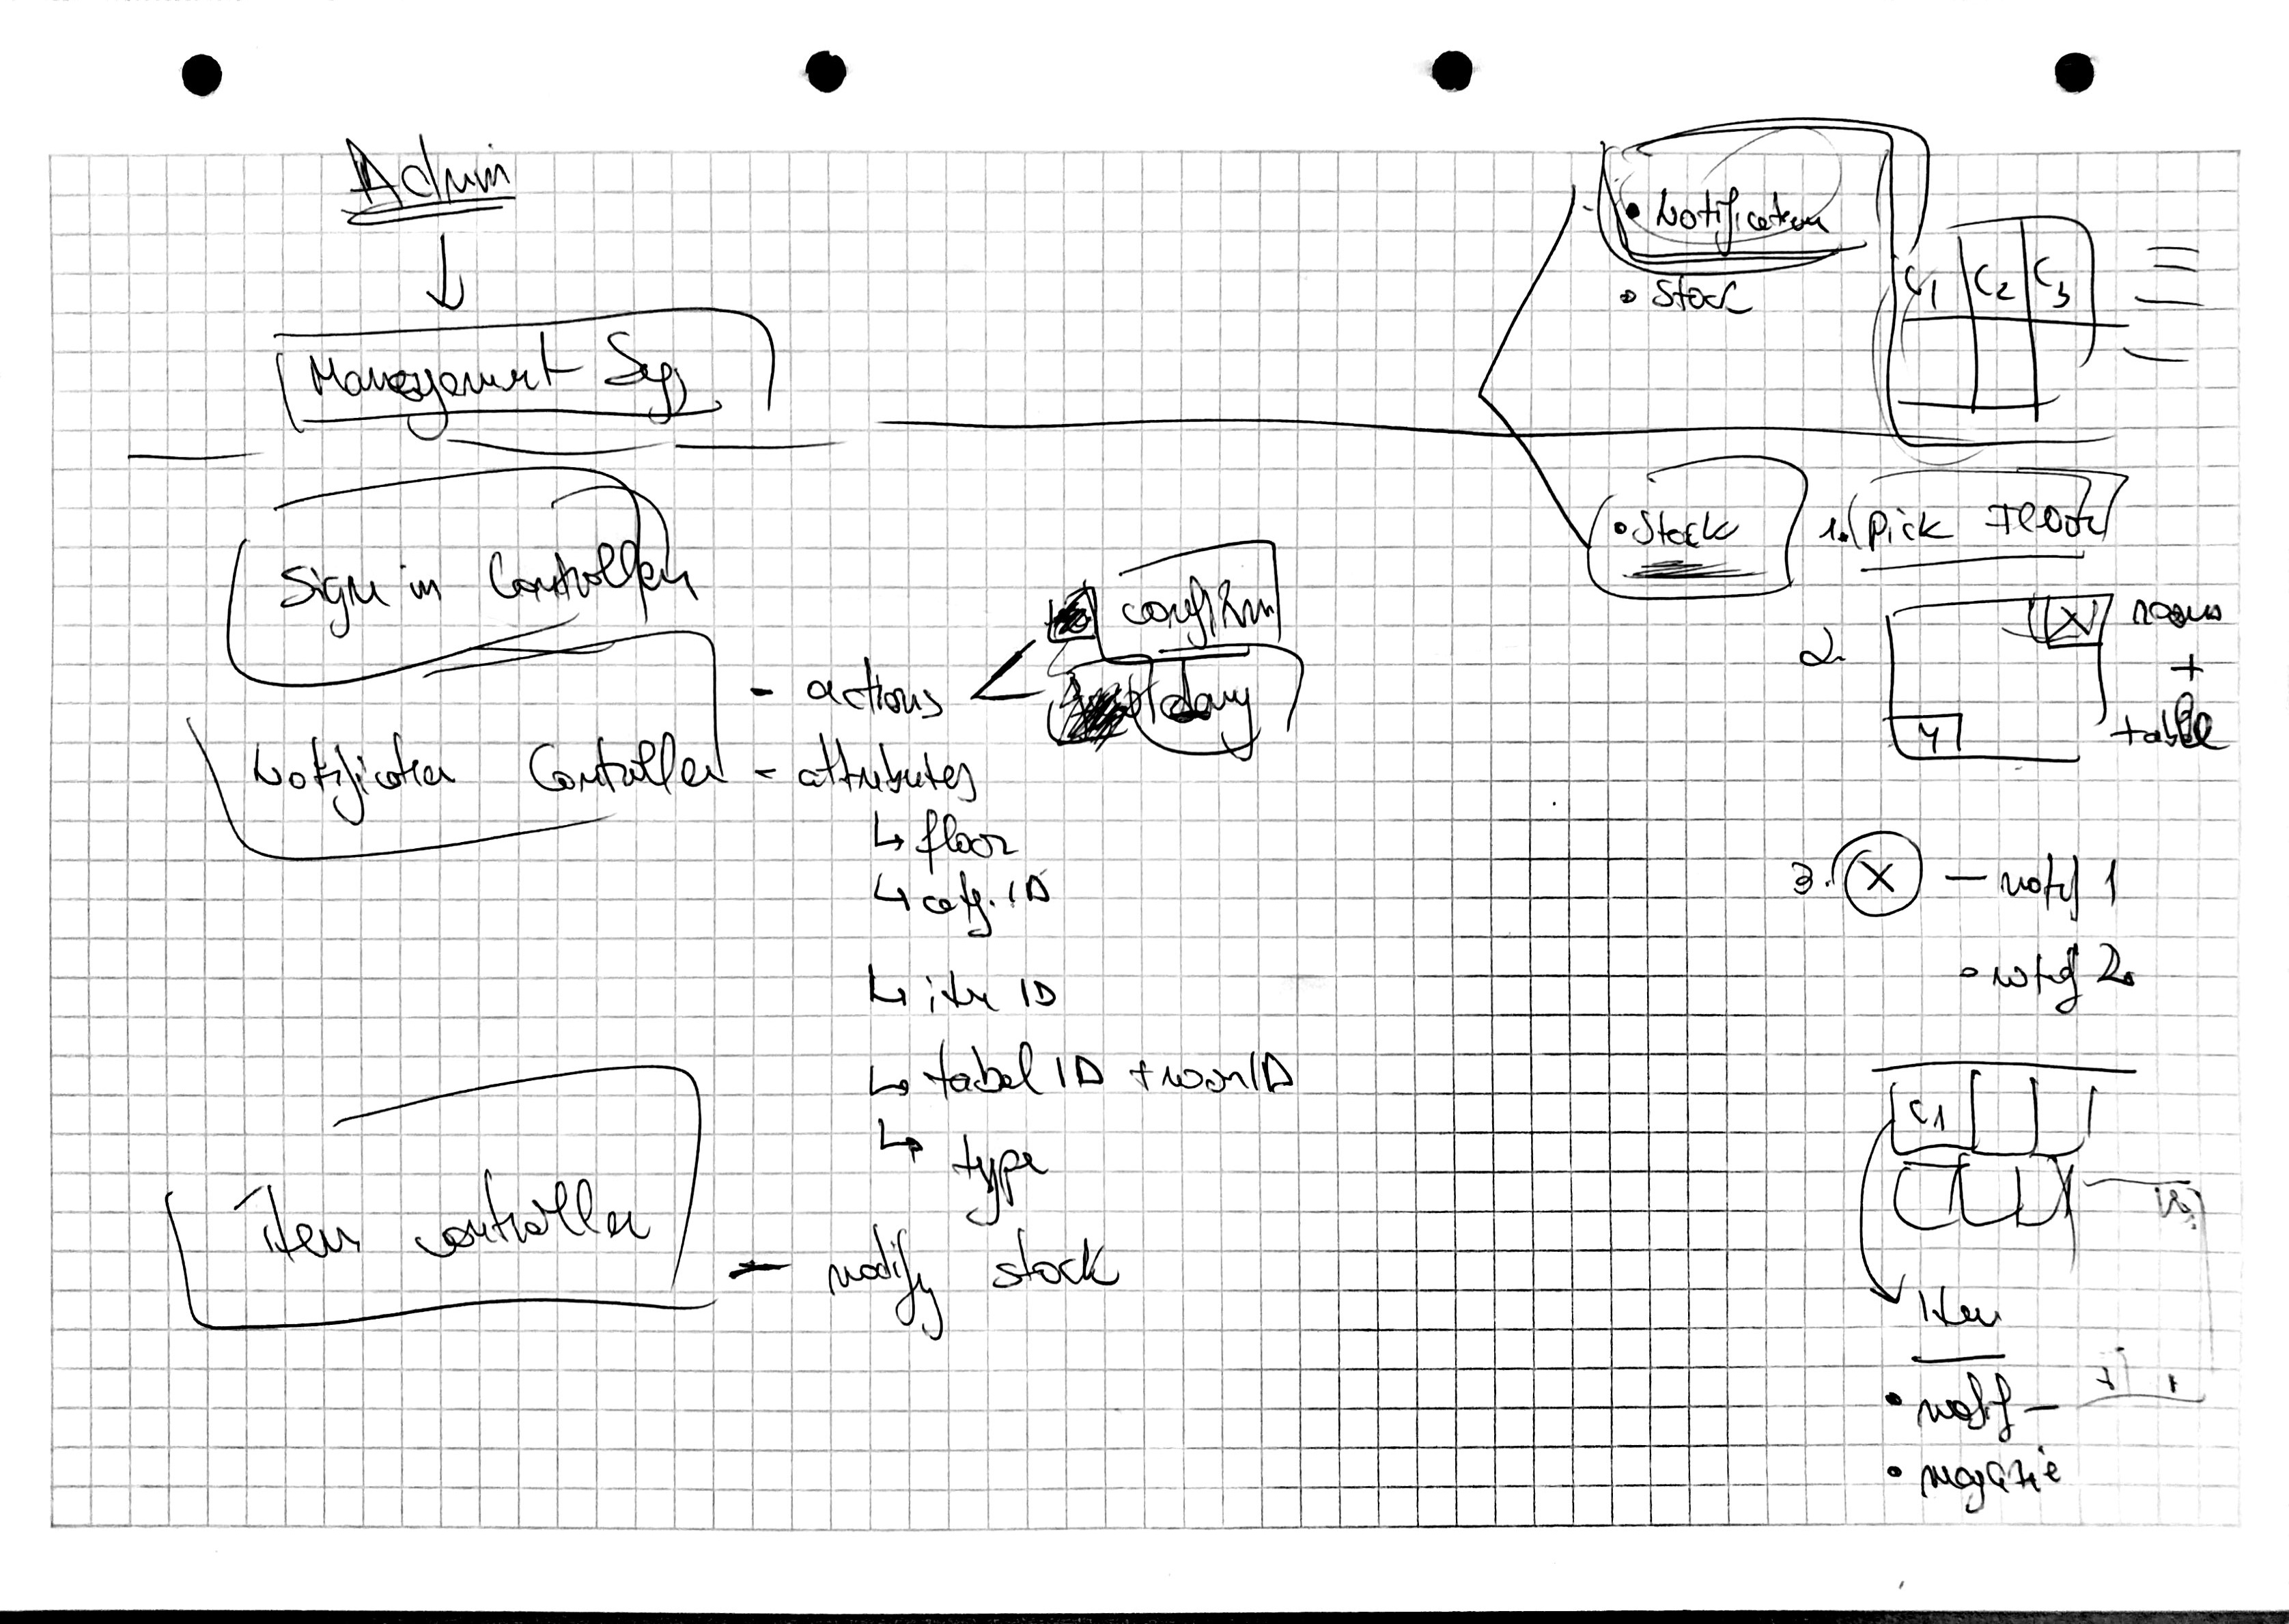 Admin
Management Sys
Sign in Controller
- actions
confirm
deny
Notification Controller - attributes
↳ floor
↳ catg. ID
↳ item ID
↳ tabel ID + room ID
↳ type
Item controller
- modify stock
• Notification
• Stock
C1 C2 C3
• Stock
1. Pick Floor
2.
X
rooms
+
tabel
Y
3. X — notif 1
• notif 2
C1
Item
• notif —
• magazie